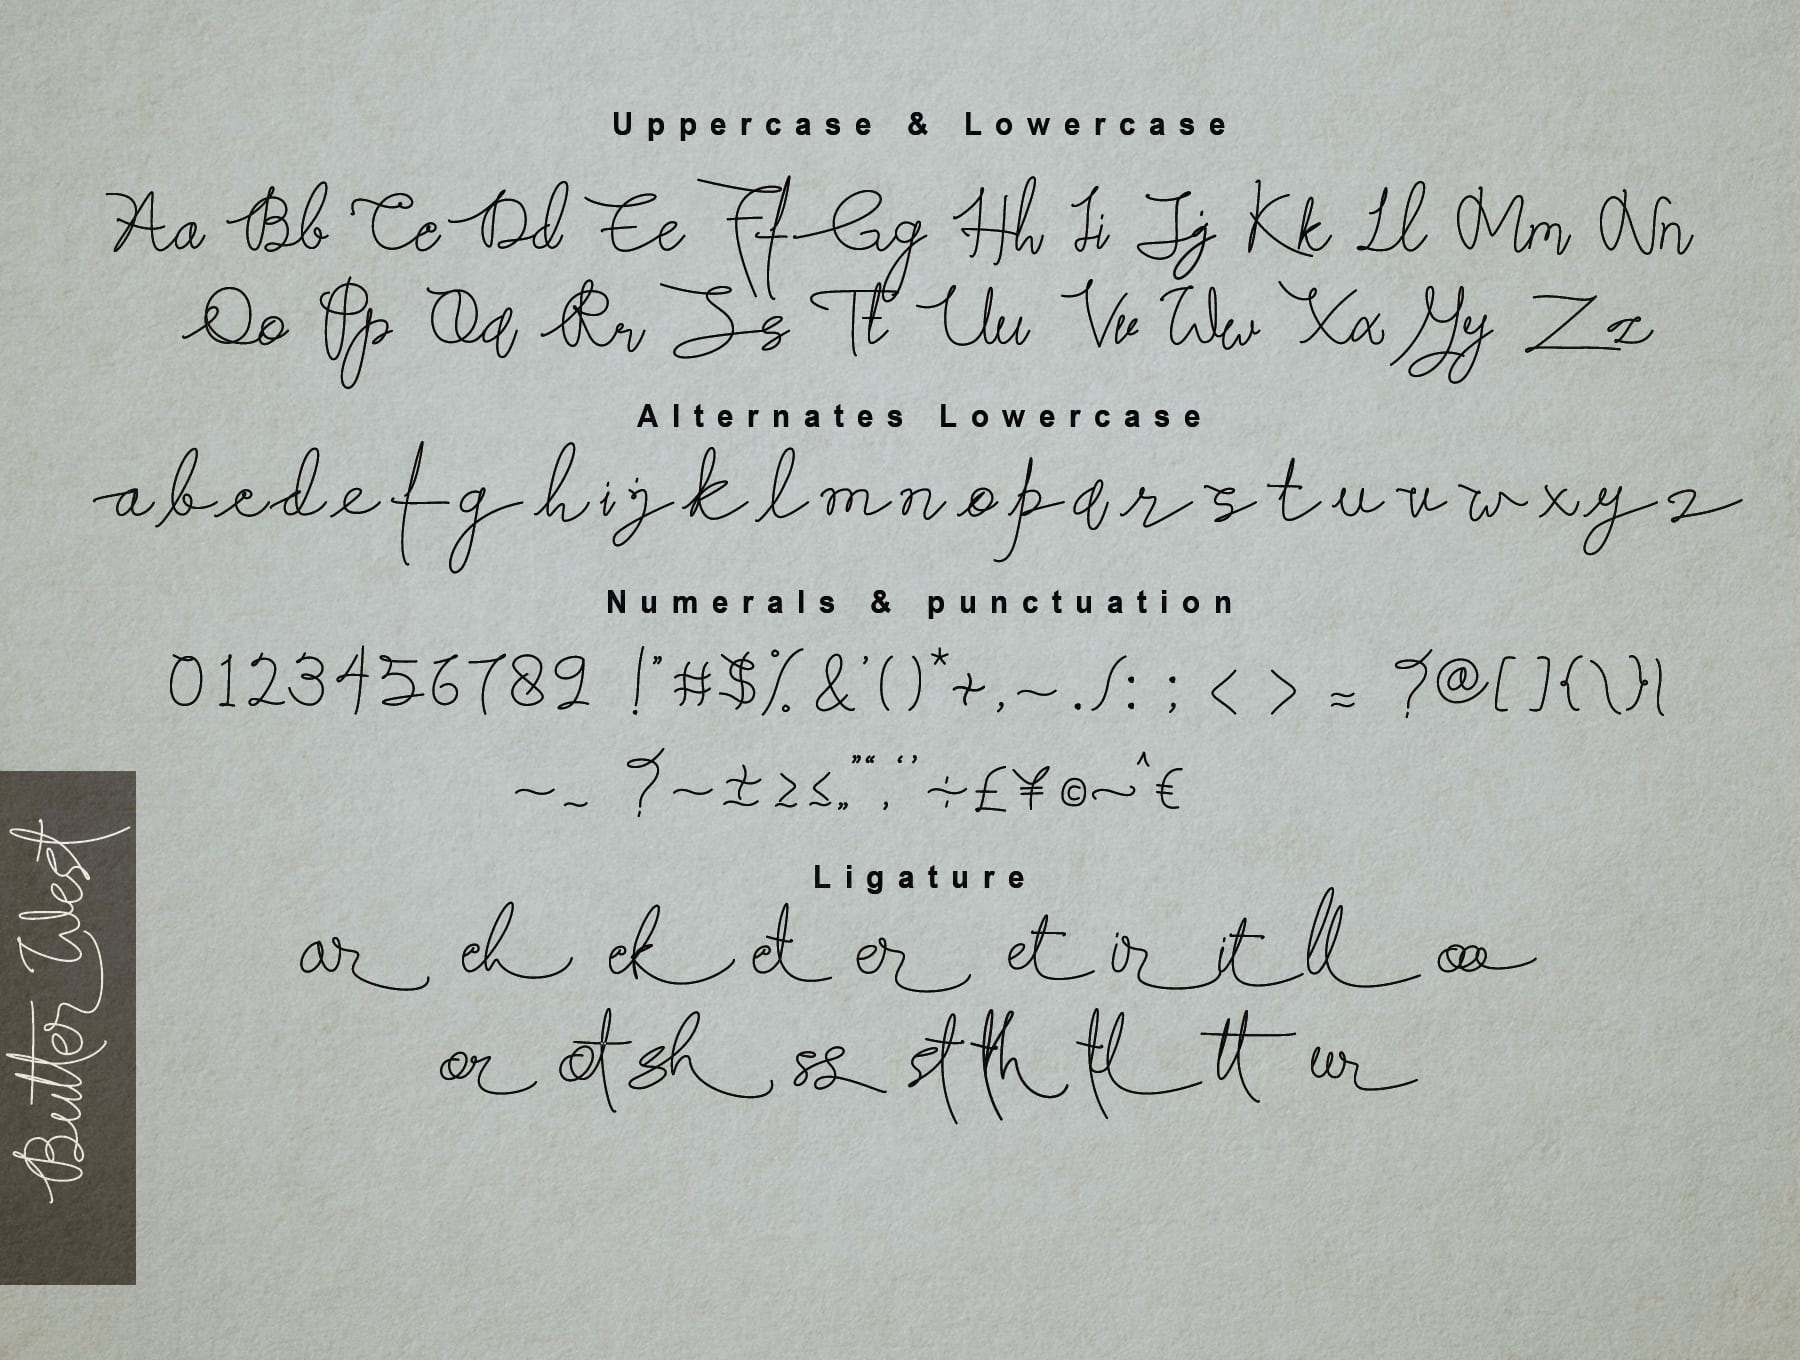 Uppercase & Lowercase
Aa Bb Cc Dd Ee Ff Gg Hh Ii Jj Kk Ll Mm Nn
Oo Pp Qq Rr Ss Tt Uu Vv Ww Xx Yy Zz
Alternates Lowercase
a b c d e f g h i j k l m n o p q r s t u v w x y z
Numerals & punctuation
0123456789 !"#$%&'()*+,~./:; < > = ?@[]{\}|
~_ ?~±≥≤„”“‚‘’÷£¥©~^€
Ligature
ar ch ck ct er et ir it ll oo
or ot sh ss st th tl tt ur
Butter West